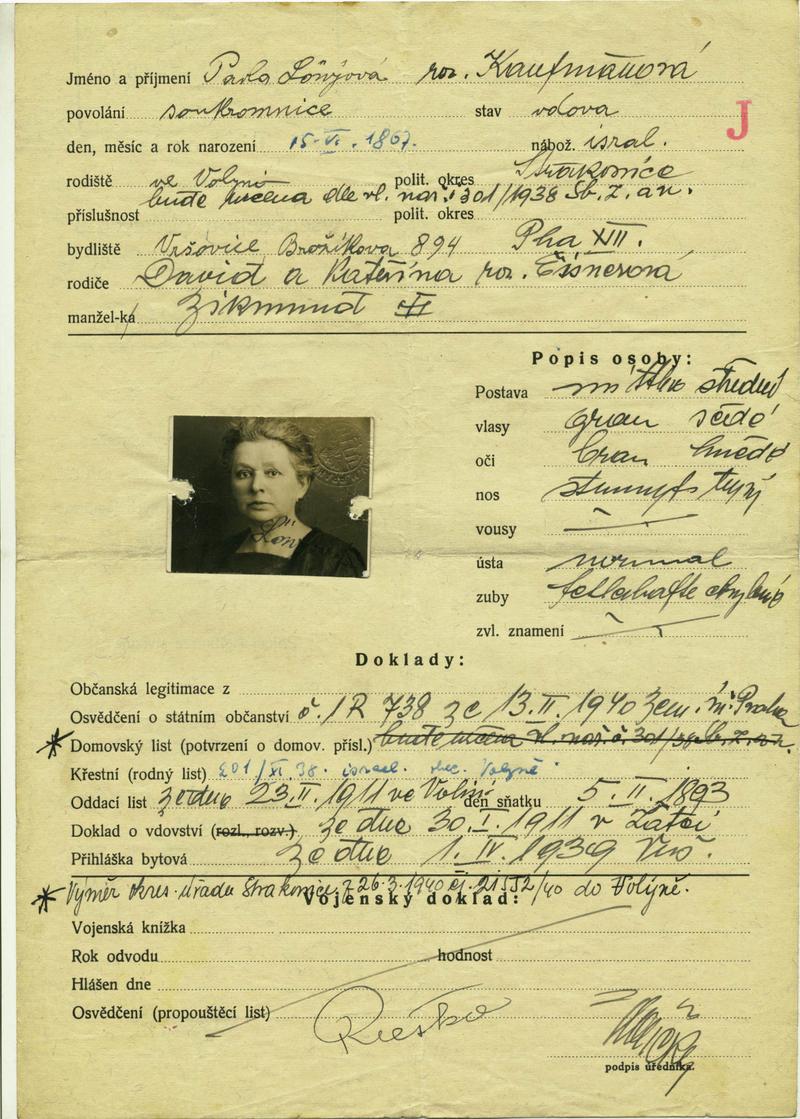 Jméno a příjmení Pavla Lönyová roz. Kaufmanová
povolání soukromnice stav vdova
J
den, měsíc a rok narození 15. VI. 1867. nábož. israel.
rodiště ve Volyni polit. okres Strakonice
bude určena dle vl. nař. č 301/1938 Sb. z. a n.
příslušnost polit. okres
bydliště Vršovice Brožíkova 894 Pha XIII.
rodiče David a Kateřina roz. Eisnerová
manžel-ka Zikmund
Popis osoby:
Postava mittel střední
vlasy grau šedé
oči braun hnědé
nos stumpf tupý
vousy
ústa normal
zuby
zvl. znamení
Lön
Doklady:
Občanská legitimace z
Osvědčení o státním občanství č. 1R 738 ze 13. II. 1940 zem. úř. Praha
Domovský list (potvrzení o domov. přísl.) bude určena vl. nař. č. 301/ Sb. z. a n.
Křestní (rodný list) 201/XI. 38. israel. Volyně
Oddací list ze dne 23. II. 1911 ve Volyni den sňatku 5. II. 1893
Doklad o vdovství (rozl., rozv.) ze dne 30. I. 1911 v Žatci
Přihláška bytová ze dne 1. IV. 1939 Vrš.
Výměr okres. úřadu Strakonice z 26.3.1940 čj. 21552/40 do Volyně.
Vojenský doklad:
Vojenská knížka
Rok odvodu hodnost
Hlášen dne
Osvědčení (propouštěcí list)
podpis úředníka.